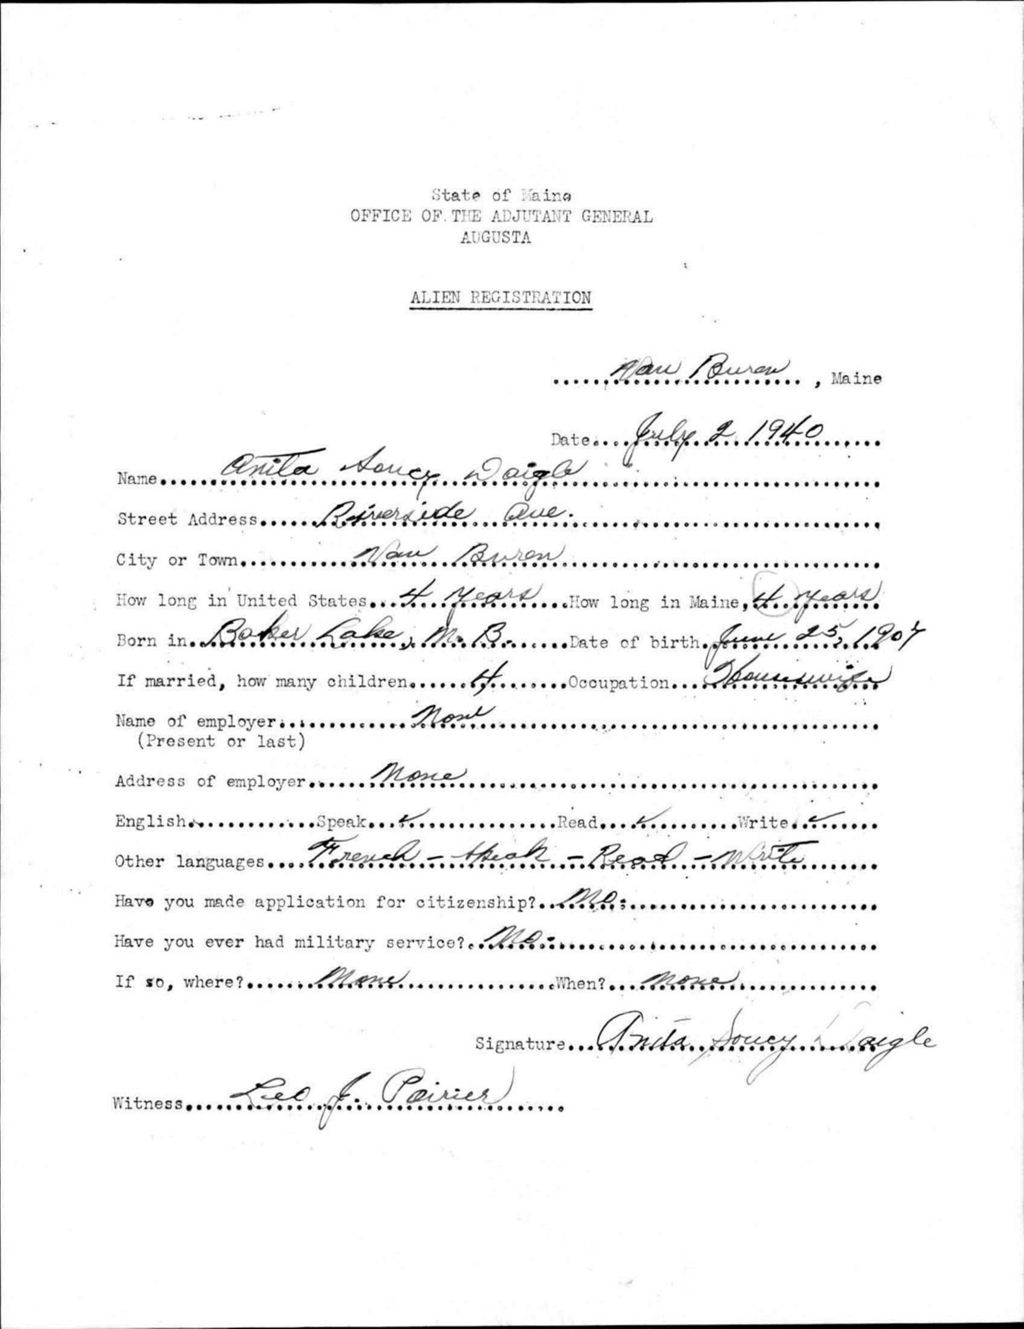 State of Maine
OFFICE OF THE ADJUTANT GENERAL
AUGUSTA
ALIEN REGISTRATION
Van Buren, Maine
Date July 2 1940
Name Anita Soucy Daigle
Street Address Riverside Ave.
City or Town Van Buren
How long in United States 4 years How long in Maine, 4 years
Born in Baker Lake, N. B. Date of birth June 25, 1907
If married, how many children 4 Occupation Housewife
Name of employer None
(Present or last)
Address of employer None
English Speak ✓ Read ✓ Write ✓
Other languages French - Speak - Read - Write
Have you made application for citizenship? No.
Have you ever had military service? No.
If so, where? None When? None
Signature Anita Soucy Daigle
Witness Leo J. Poirier